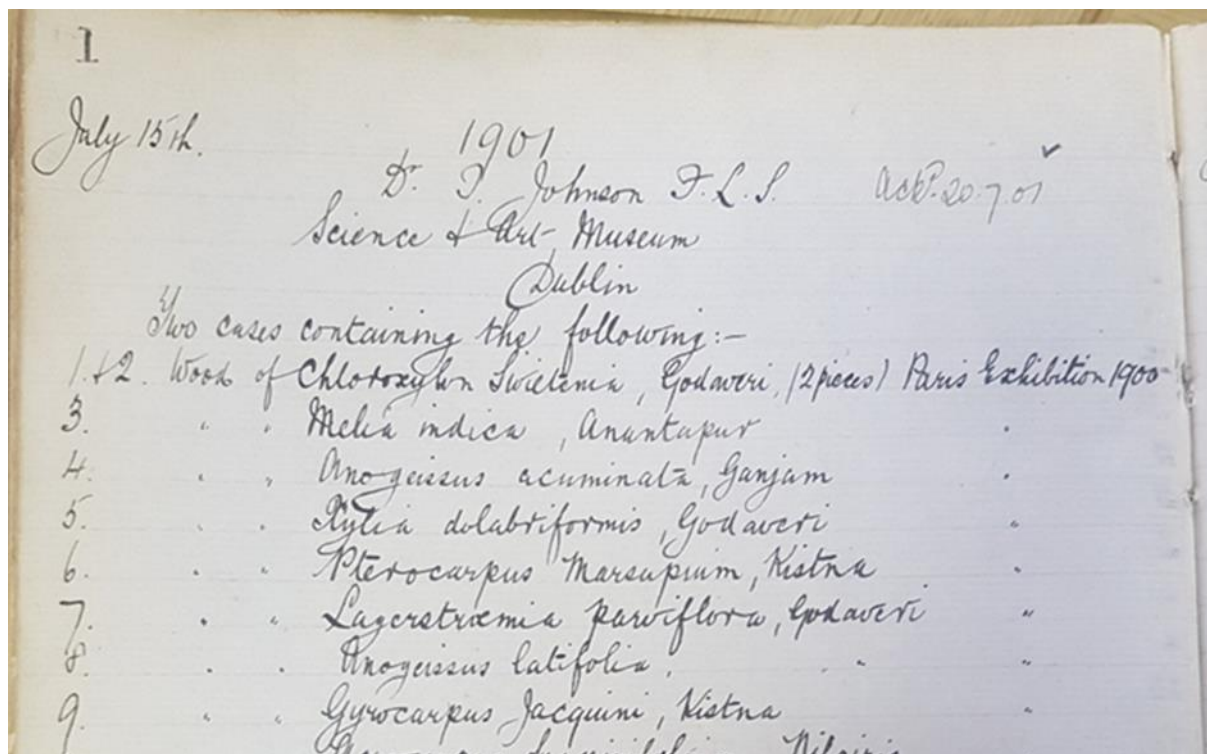 1
July 15th.
1901
Dr. T. Johnson F.L.S. Ackd. 20.7.01
Science & Art Museum
Dublin
Two cases containing the following:-
1.+2. Wood of Chloroxylon Swietenia, Godaveri, (2 pieces) Paris Exhibition 1900
3. " " Melia indica, Anantapur "
4. " " Anogeissus acuminata, Ganjam "
5. " " Xylia dolabriformis, Godaveri "
6. " " Pterocarpus Marsupium, Kistna "
7. " " Lagerstrœmia parviflora, Godaveri "
8. " " Anogeissus latifolia, " "
9. " " Gyrocarpus Jacquini, Kistna "